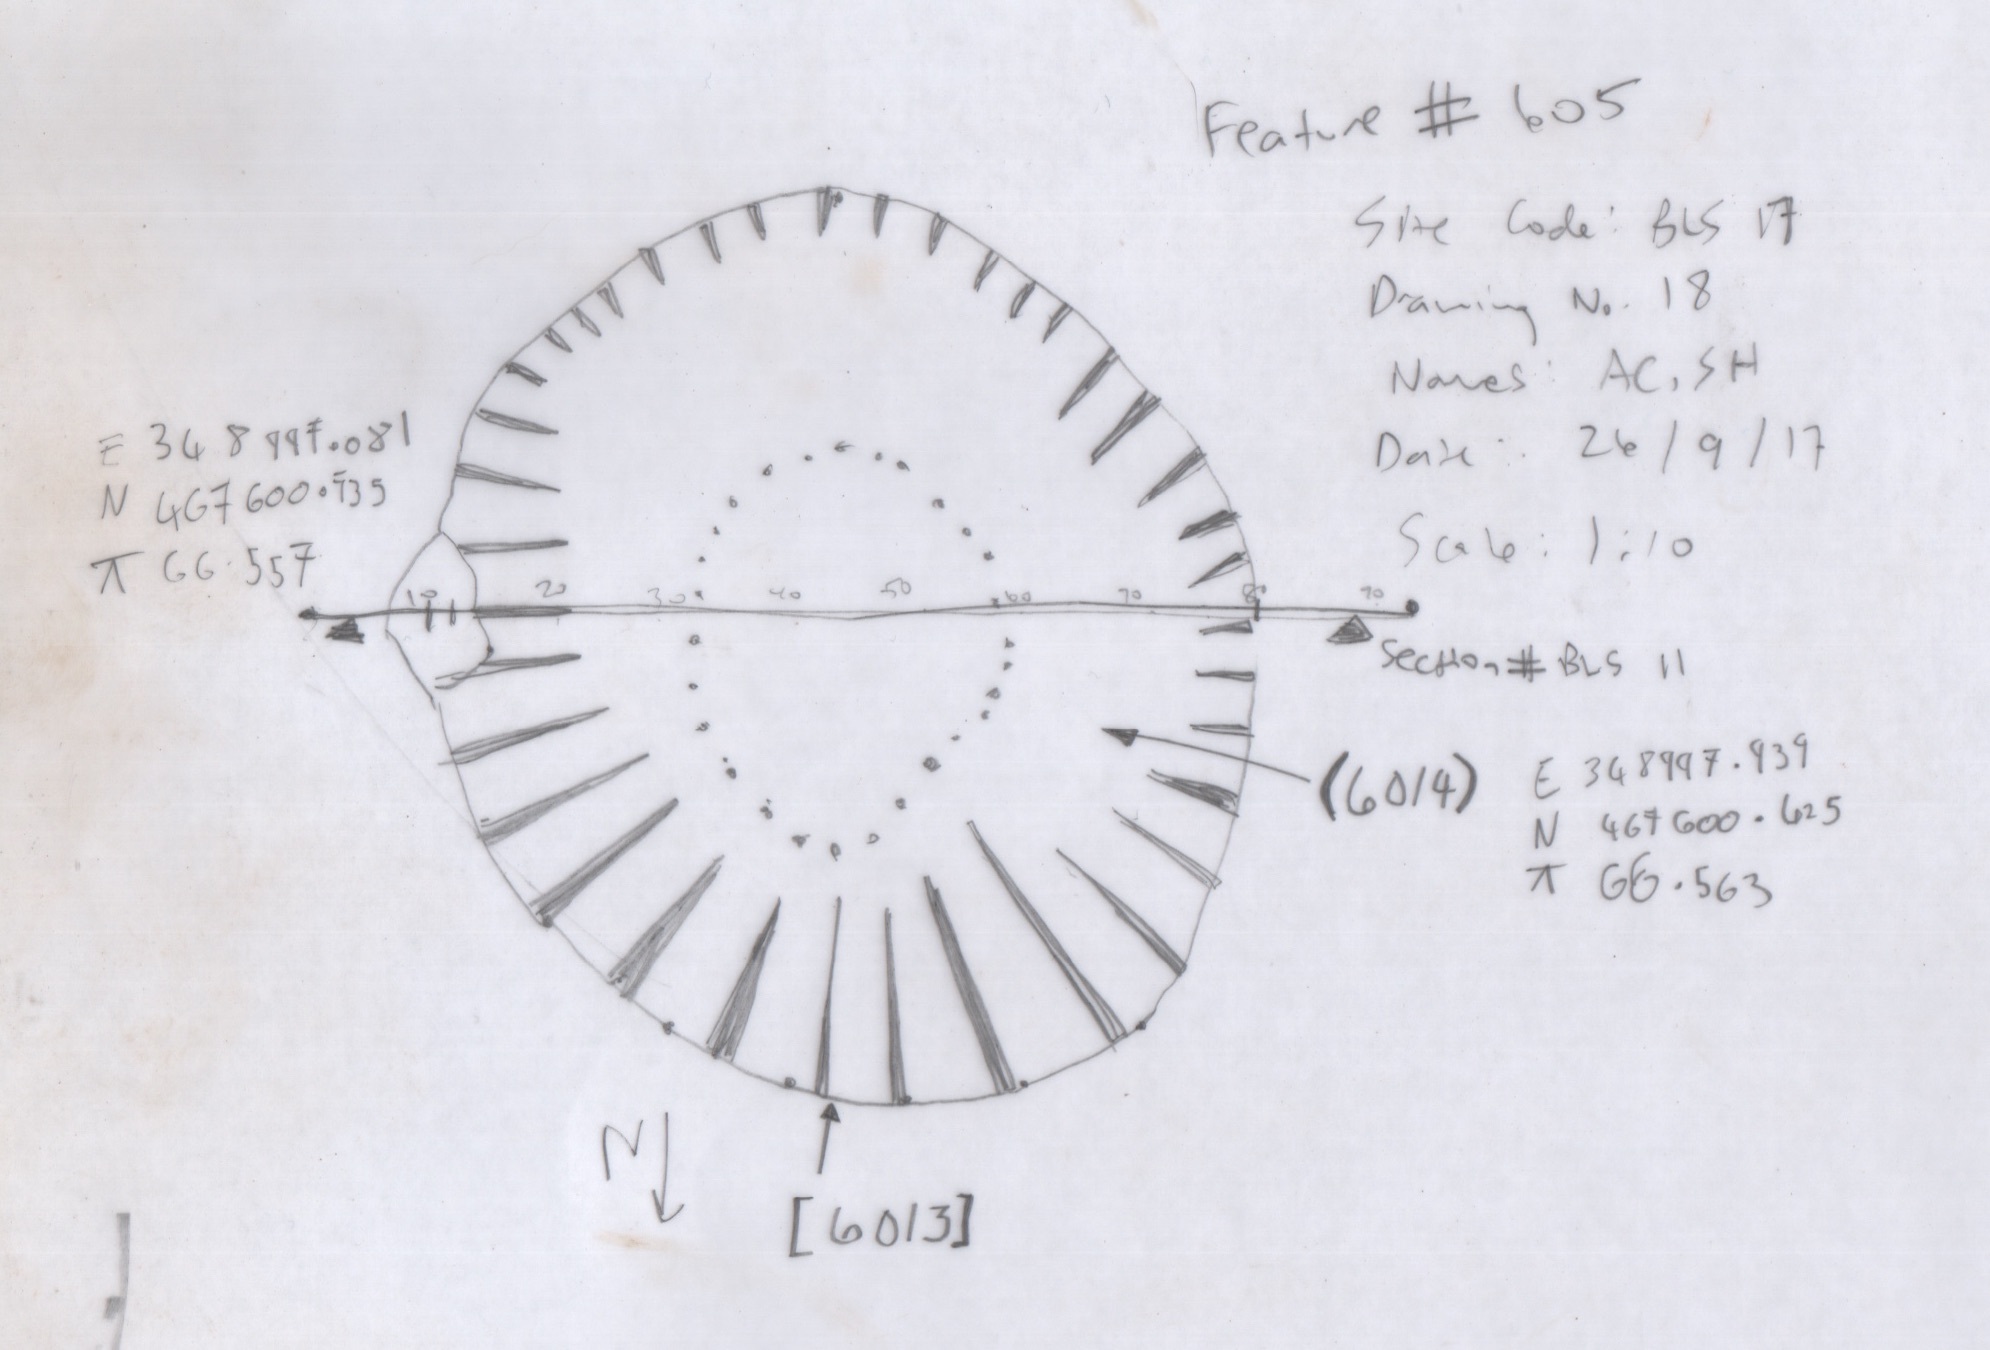 Feature # 605
Site Code: BLS 17
Drawing No. 18
Names: AC, SH
Date: 26/9/17
Scale: 1:10
E 348997.081
N 467600.735
⊼ 66.557
10 20 30 40 50 60 70 80 90
Section # BLS 11
(6014)
E 348997.939
N 467600.625
⊼ 66.563
N
[6013]